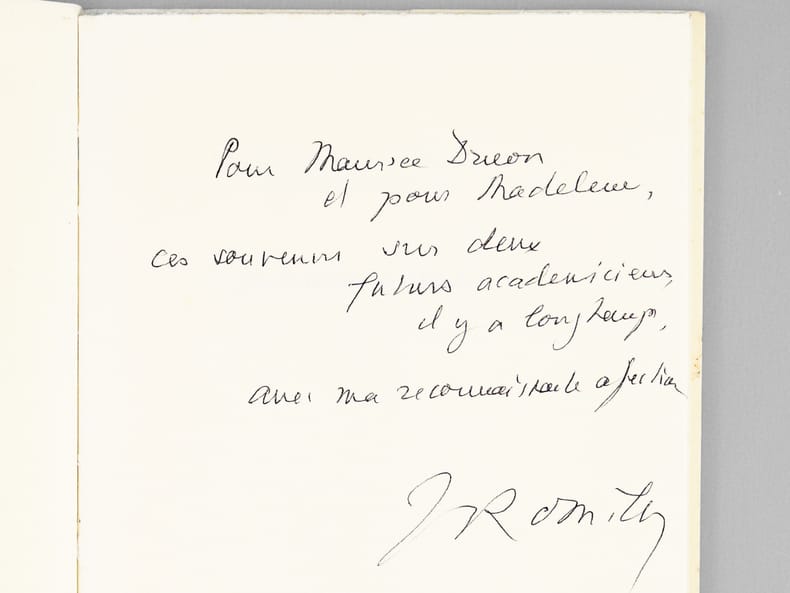 Pour Maurice Druon
et pour Madeleine,
ces souvenirs sur deux
futurs academiciens,
il y a longtemps,
avec ma reconnaissante affection
J Romilly